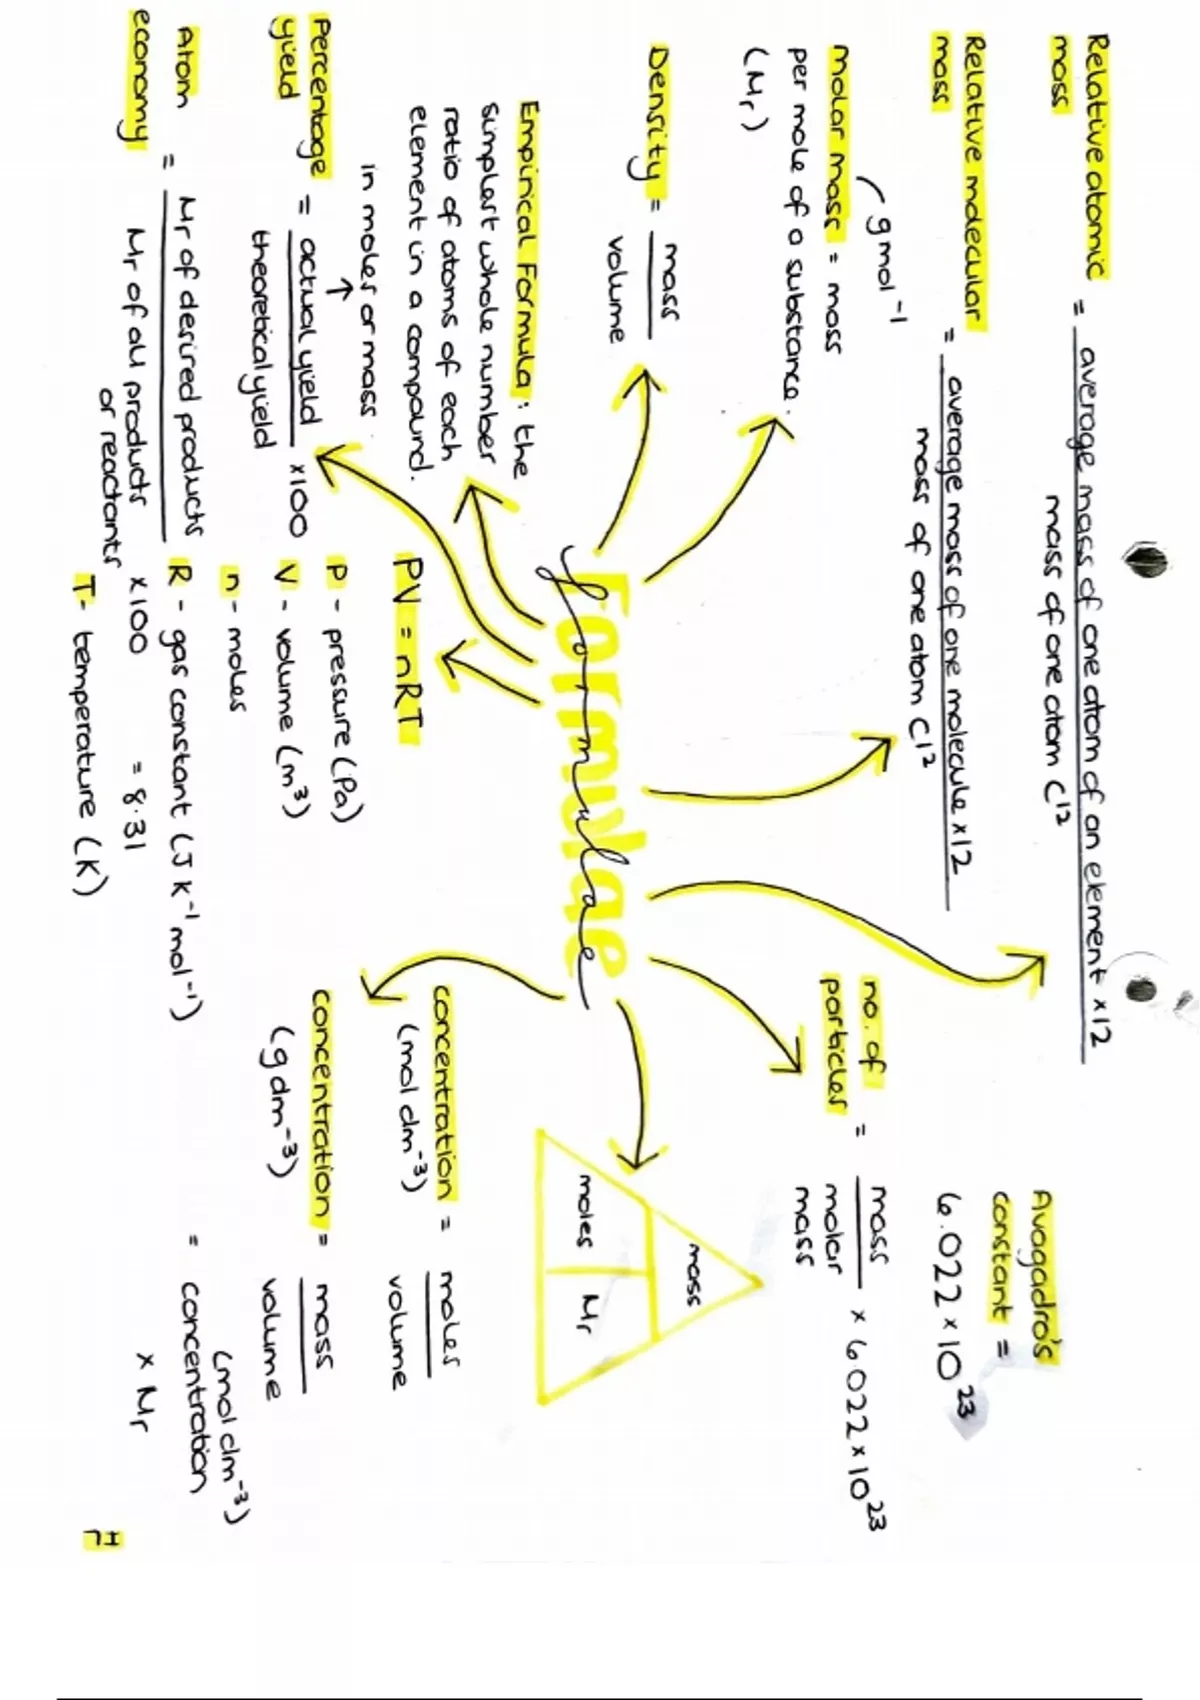 Relative atomic
mass
= average mass of one atom of an element × 12
mass of one atom C¹²
Relative molecular
mass
= average mass of one molecule × 12
mass of one atom C¹²
gmol⁻¹
Molar mass = mass
per mole of a substance.
(Mr)
Density = mass
volume
Empirical Formula: the
simplest whole number
ratio of atoms of each
element in a compound.
in moles or mass
Percentage
yield
= actual yield × 100
theoretical yield
Atom
economy
= Mr of desired products
Mr of all products
or reactants
× 100
Formulae
formulae
PV = nRT
P - pressure (Pa)
V - volume (m³)
n - moles
R - gas constant (J K⁻¹ mol⁻¹)
= 8.31
T - temperature (K)
Avagadro's
constant =
6.022 × 10²³
no. of
particles
= mass × 6.022 × 10²³
molar
mass
mass
moles
Mr
concentration = moles
(mol dm⁻³)
volume
concentration = mass
(gdm⁻³)
volume
(mol dm⁻³)
= concentration
× Mr